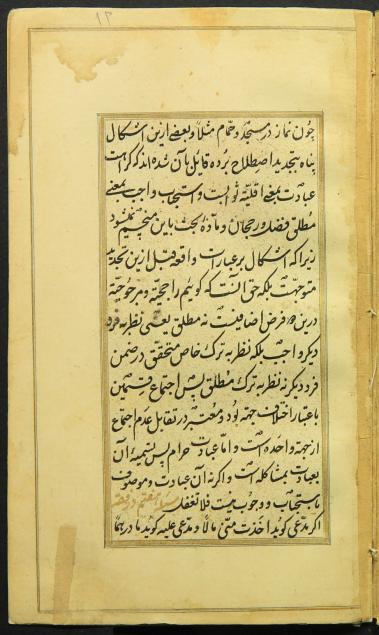 ۱۲
چون نماز در مسجد و حمام مثلا و بعضی ازین اشکال
پناه بتجدید اصطلاح برده قایل بآن شده‌اند که کراهت
عبادت بمعنی اقلیّة ثوابست و استحباب واجب بمعنی
مطلق فضل و رجحان و مادهٔ بحث باین منحسم نمیشود
زیرا که اشکال بر عبارات واقعه قبل ازین تجدید
متوجهست بلکه حق آنست که گوئیم راجحیّة و مرجوحیّة
درین فرض اضافیست نه مطلق یعنی نظر به فرد
دیگر واجب بلکه نظر به ترک خاص متحقق در ضمن
فرد دیگر نه نظر به ترک مطلق پس اجتماع قسمین
باعتبار اختلاف جهة بود و معتبر در تقابل عدم اجتماع
از جهة واحده است و اما عبادت حرام پس تسمیهٔ آن
بعبادت بمشاکله است و اگر نه آن عبادت و موصوف
باستحباب و وجوب نیست فلا تغفل
اگر مدعی گوید اخذت منی مالا و مدعی علیه گوید ما